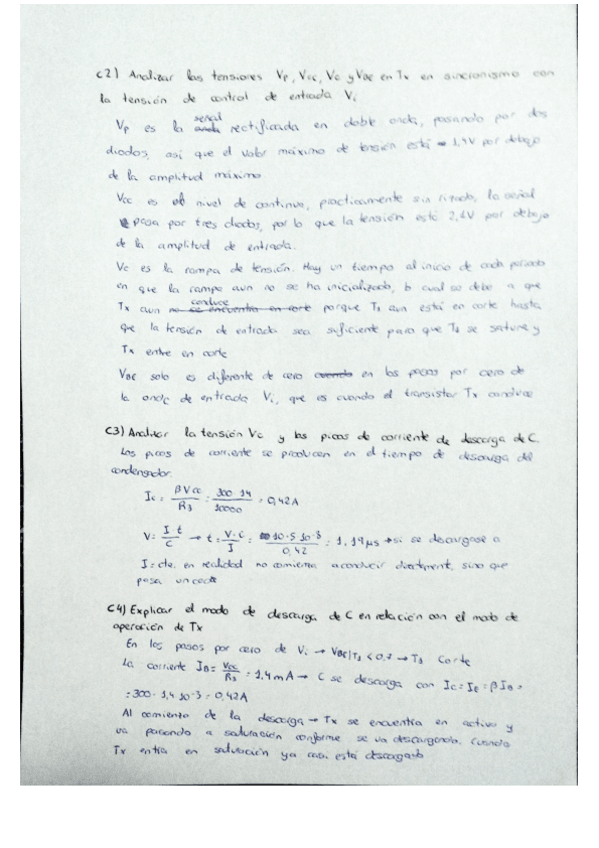 C2) Analizar las tensiones Vp, Vcc, Vc y VBE en Tx en sincronismo con
la tensión de control de entrada Vi
señal
Vp es la onda rectificada en doble onda, pasando por dos
diodos, así que el valor máximo de tensión está 1,4V por debajo
de la amplitud máxima
Vcc es el nivel de continua, practicamente sin rizado, la señal
pasa por tres diodos, por lo que la tensión está 2,1V por debajo
de la amplitud de entrada.
Vc es la rampa de tensión. Hay un tiempo al inicio de cada periodo
en que la rampa aun no se ha inicializado, lo cual se debe a que
conduce
Tx aun no se encuentra en corte porque T1 aun está en corte hasta
que la tensión de entrada sea suficiente para que T1 se sature y
Tx entre en corte
VBE solo es diferente de cero cuando en los pasos por cero de
la onda de entrada Vi, que es cuando el transistor Tx conduce
C3) Analizar la tensión Vc y los picos de corriente de descarga de C.
Los picos de corriente se producen en el tiempo de descarga del
condensador.
Ic = βVcc/R3 = 300·14/10000 = 0,42A
V = I t/C → t = V·C/I = 10·5 10^-3/0,42 = 1,19μs → si se descargase a
I = cte. en realidad no comienza a conducir directamente, sino que
pasa un
C4) Explicar el modo de descarga de C en relación con el modo de
operación de Tx
En los pasos por cero de Vi → VBE|T1 < 0,7 → T1 Corte
La corriente IB = Vcc/R3 = 1,4mA → C se descarga con Ic = IE = βIB =
= 300·1,4 10^-3 = 0,42A
Al comienzo de la descarga → Tx se encuentra en activa y
va pasando a saturación conforme se va descargando. Cuando
Tx entra en saturación ya casi está descargado